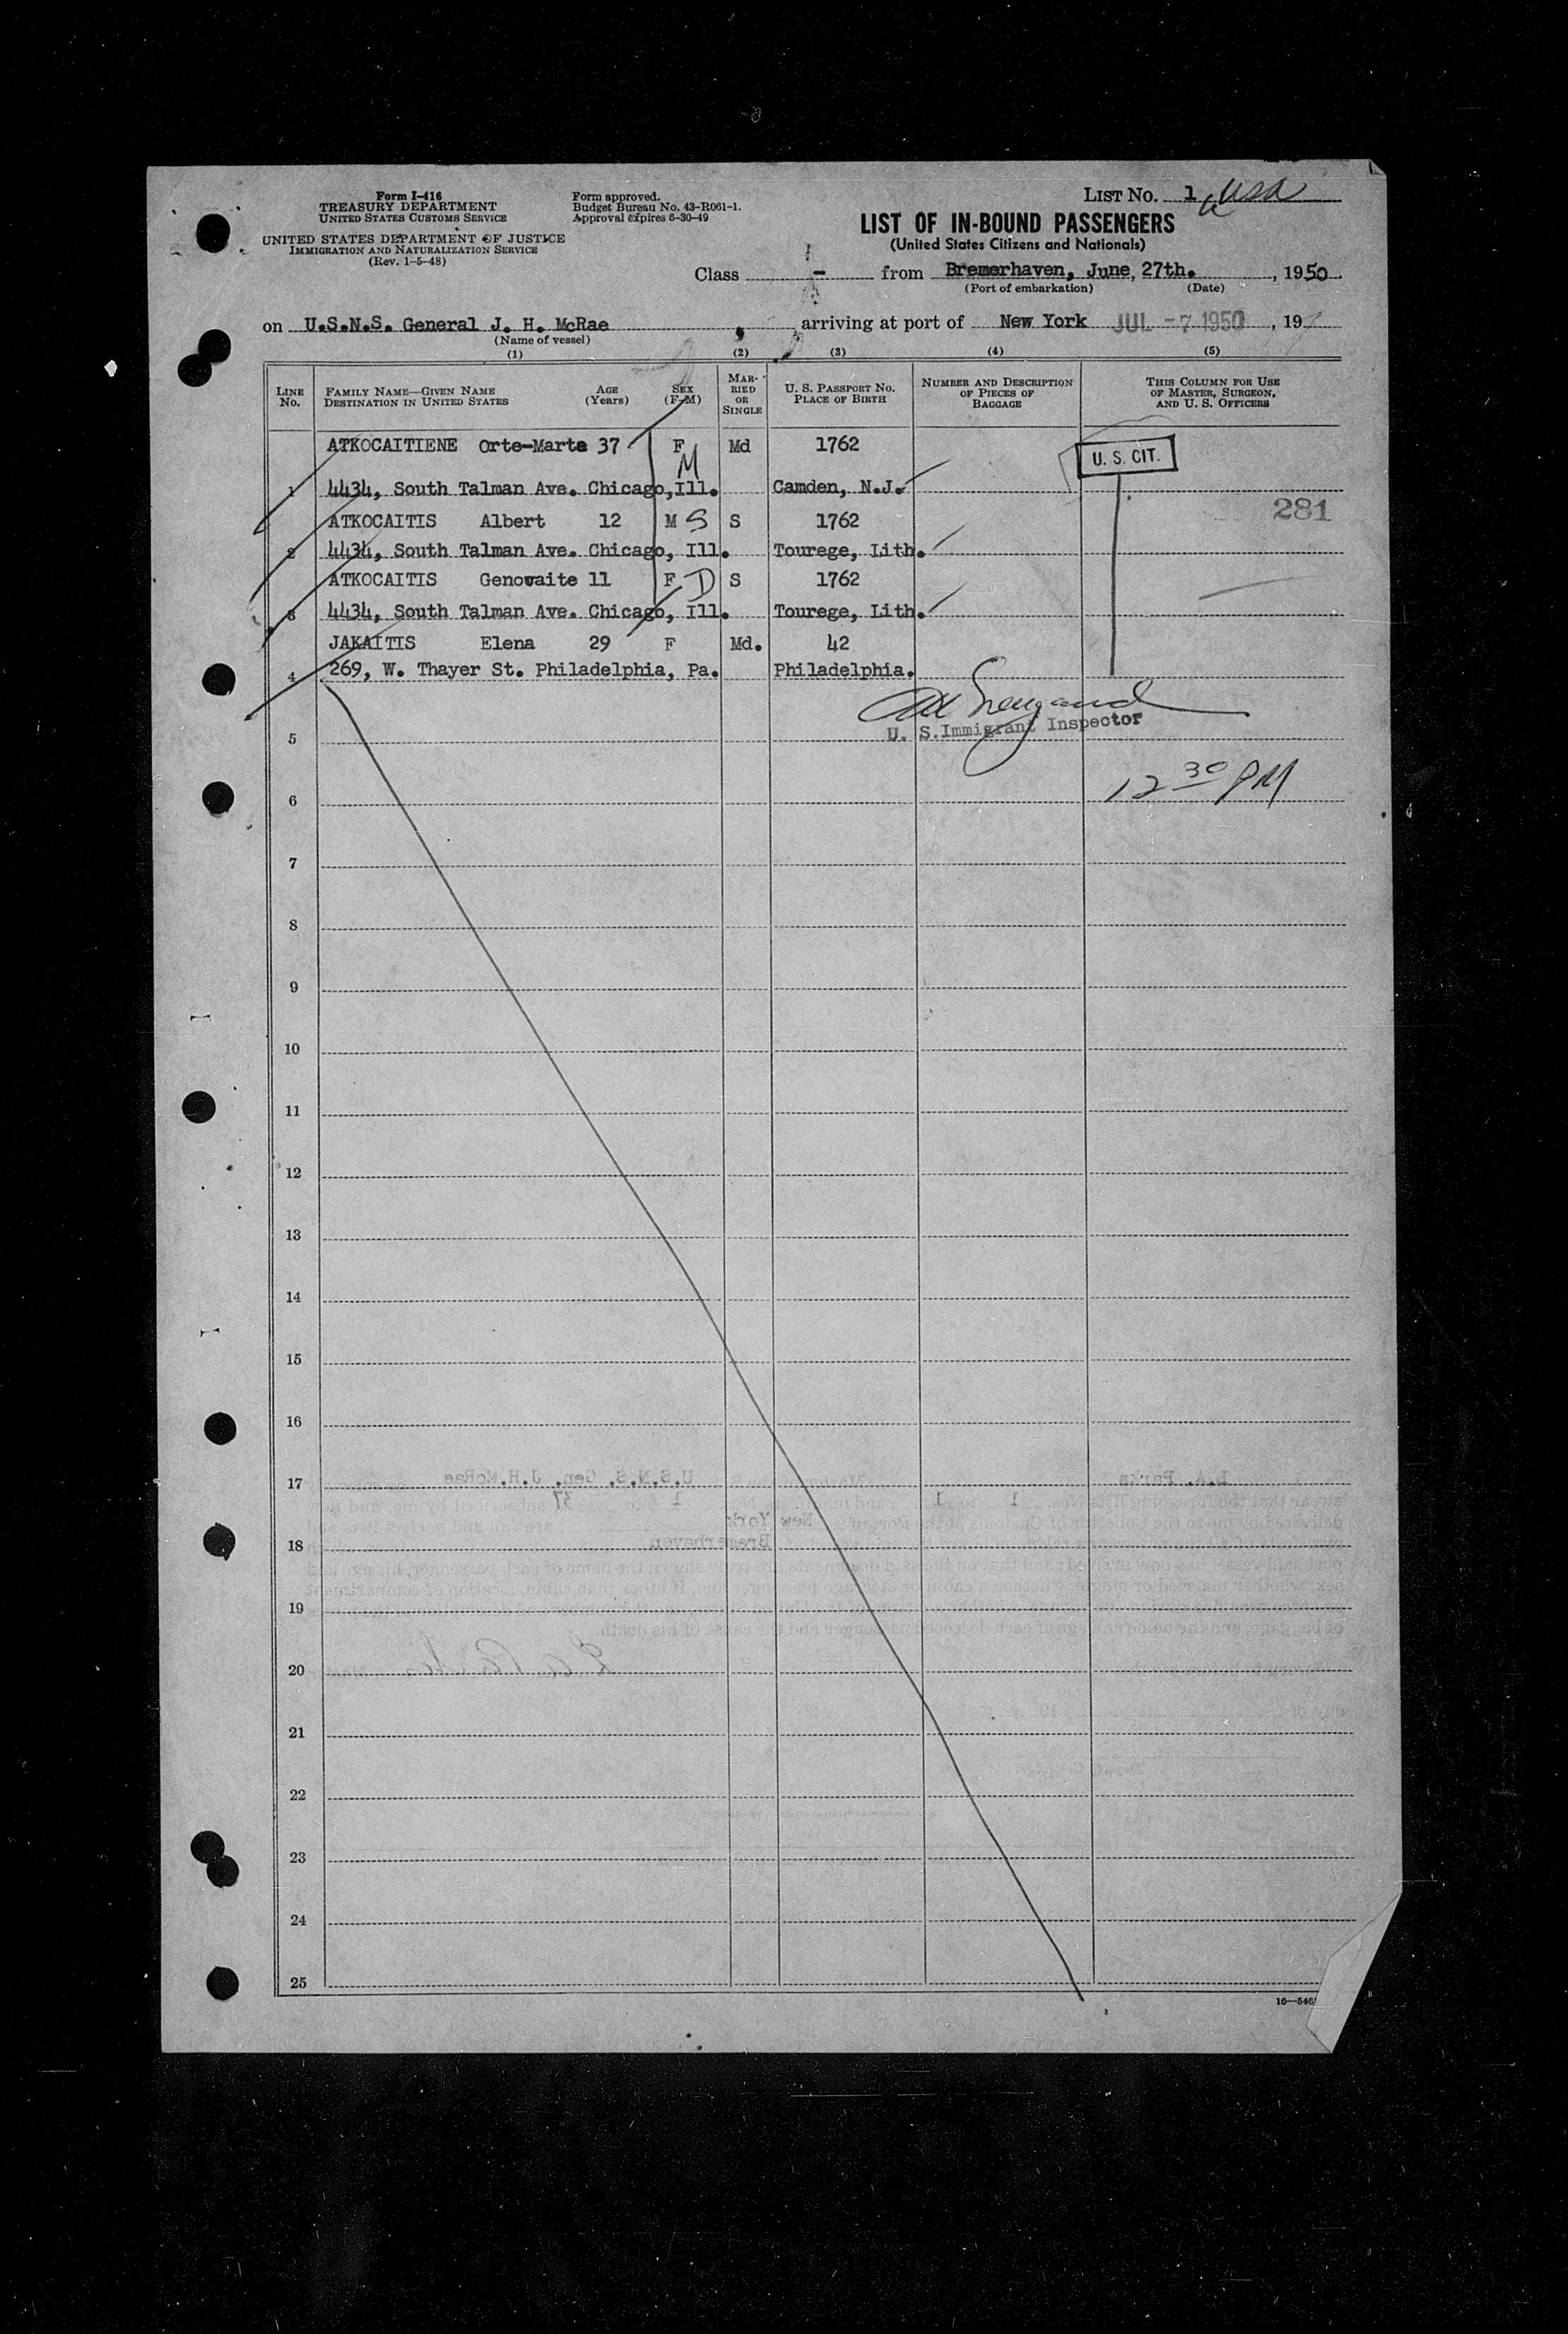 Form I-416
TREASURY DEPARTMENT
UNITED STATES CUSTOMS SERVICE
UNITED STATES DEPARTMENT OF JUSTICE
IMMIGRATION AND NATURALIZATION SERVICE
(Rev. 1-5-48)
Form approved.
Budget Bureau No. 43-R061-1.
Approval expires 6-30-49
LIST NO. 1 USA
LIST OF IN-BOUND PASSENGERS
(United States Citizens and Nationals)
Class - from Bremerhaven, June, 27th. , 1950
(Port of embarkation) (Date)
on U.S.N.S. General J. H. McRae , arriving at port of New York JUL -7 1950 , 19
(Name of vessel)
(1) (2) (3) (4) (5)
LINE NO.
FAMILY NAME—GIVEN NAME
DESTINATION IN UNITED STATES
AGE (Years)
SEX (F-M)
MARRIED OR SINGLE
U. S. PASSPORT NO.
PLACE OF BIRTH
NUMBER AND DESCRIPTION OF PIECES OF BAGGAGE
THIS COLUMN FOR USE OF MASTER, SURGEON, AND U. S. OFFICERS
ATKOCAITIENE Orte-Marta 37 F M Md 1762 U. S. CIT.
1 4434, South Talman Ave. Chicago, Ill. Camden, N.J.
281
ATKOCAITIS Albert 12 M S S 1762
2 4434, South Talman Ave. Chicago, Ill. Tourege, Lith.
ATKOCAITIS Genowaite 11 F D S 1762
3 4434, South Talman Ave. Chicago, Ill. Tourege, Lith.
JAKAITIS Elena 29 F Md. 42
4 269, W. Thayer St. Philadelphia, Pa. Philadelphia.
U. S. Immigrant Inspector
5
12 30 PM
6
7
8
9
10
11
12
13
14
15
16
17
18
19
20
21
22
23
24
25